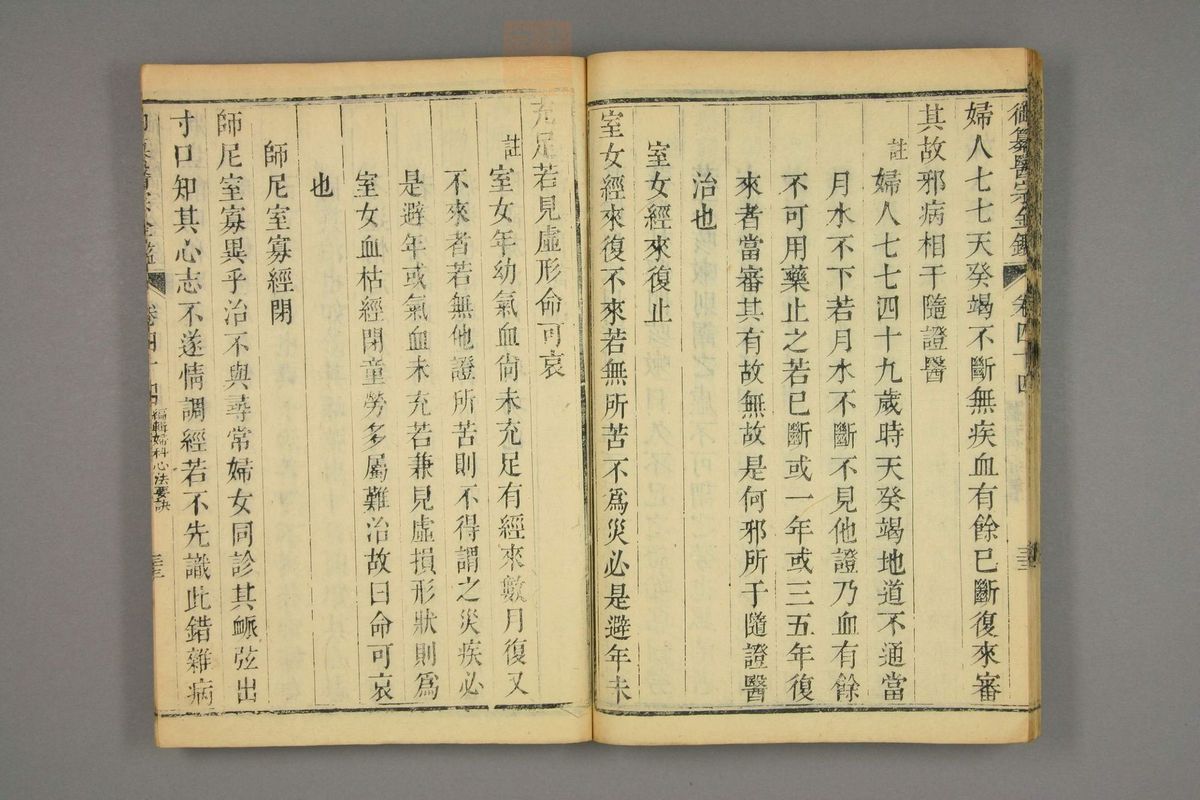 御纂醫宗金鑑 卷四十四
婦人七七天癸竭不斷無疾血有餘已斷復來審
其故邪病相干隨證醫
註 婦人七七四十九歲時天癸竭地道不通當
月水不下若月水不斷不見他證乃血有餘
不可用藥止之若已斷或一年或三五年復
來者當審其有故無故是何邪所干隨證醫
治也
室女經來復止
室女經來復不來若無所苦不爲災必是避年未
充足若見虛形命可哀
註 室女年幼氣血尙未充足有經來數月復又
不來者若無他證所苦則不得謂之災疾必
是避年或氣血未充若兼見虛損形狀則爲
室女血枯經閉童勞多屬難治故曰命可哀
也
師尼室寡經閉
師尼室寡異乎治不與尋常婦女同診其脈弦出
寸口知其心志不遂情調經若不先識此錯雜病
卷四十四 編輯婦科心法要訣